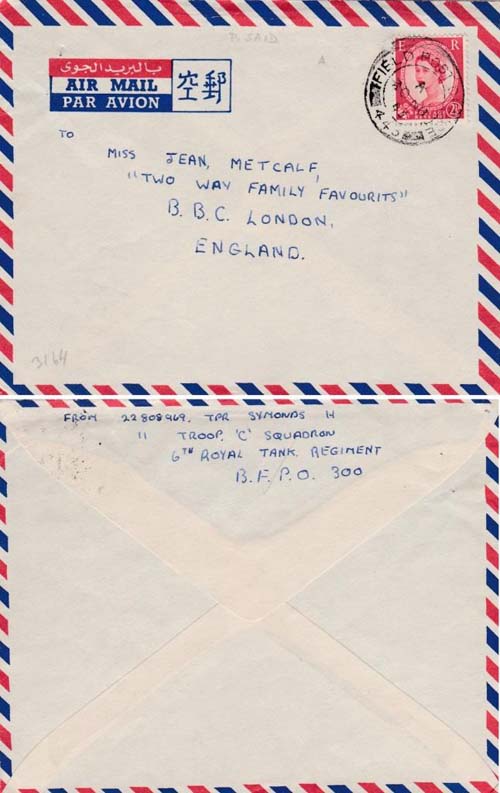 P. SAID
A
بالبريد الجوى
AIR MAIL
PAR AVION
空郵
E R
FIELD POST
443
2½
TO
MISS JEAN, METCALF,
"TWO WAY FAMILY FAVOURITS"
B.B.C. LONDON,
ENGLAND.
3164
FROM 22808969. TPR SYMONDS H
11 TROOP, 'C' SQUADRON
6TH ROYAL TANK. REGIMENT
B.F.P.O. 300